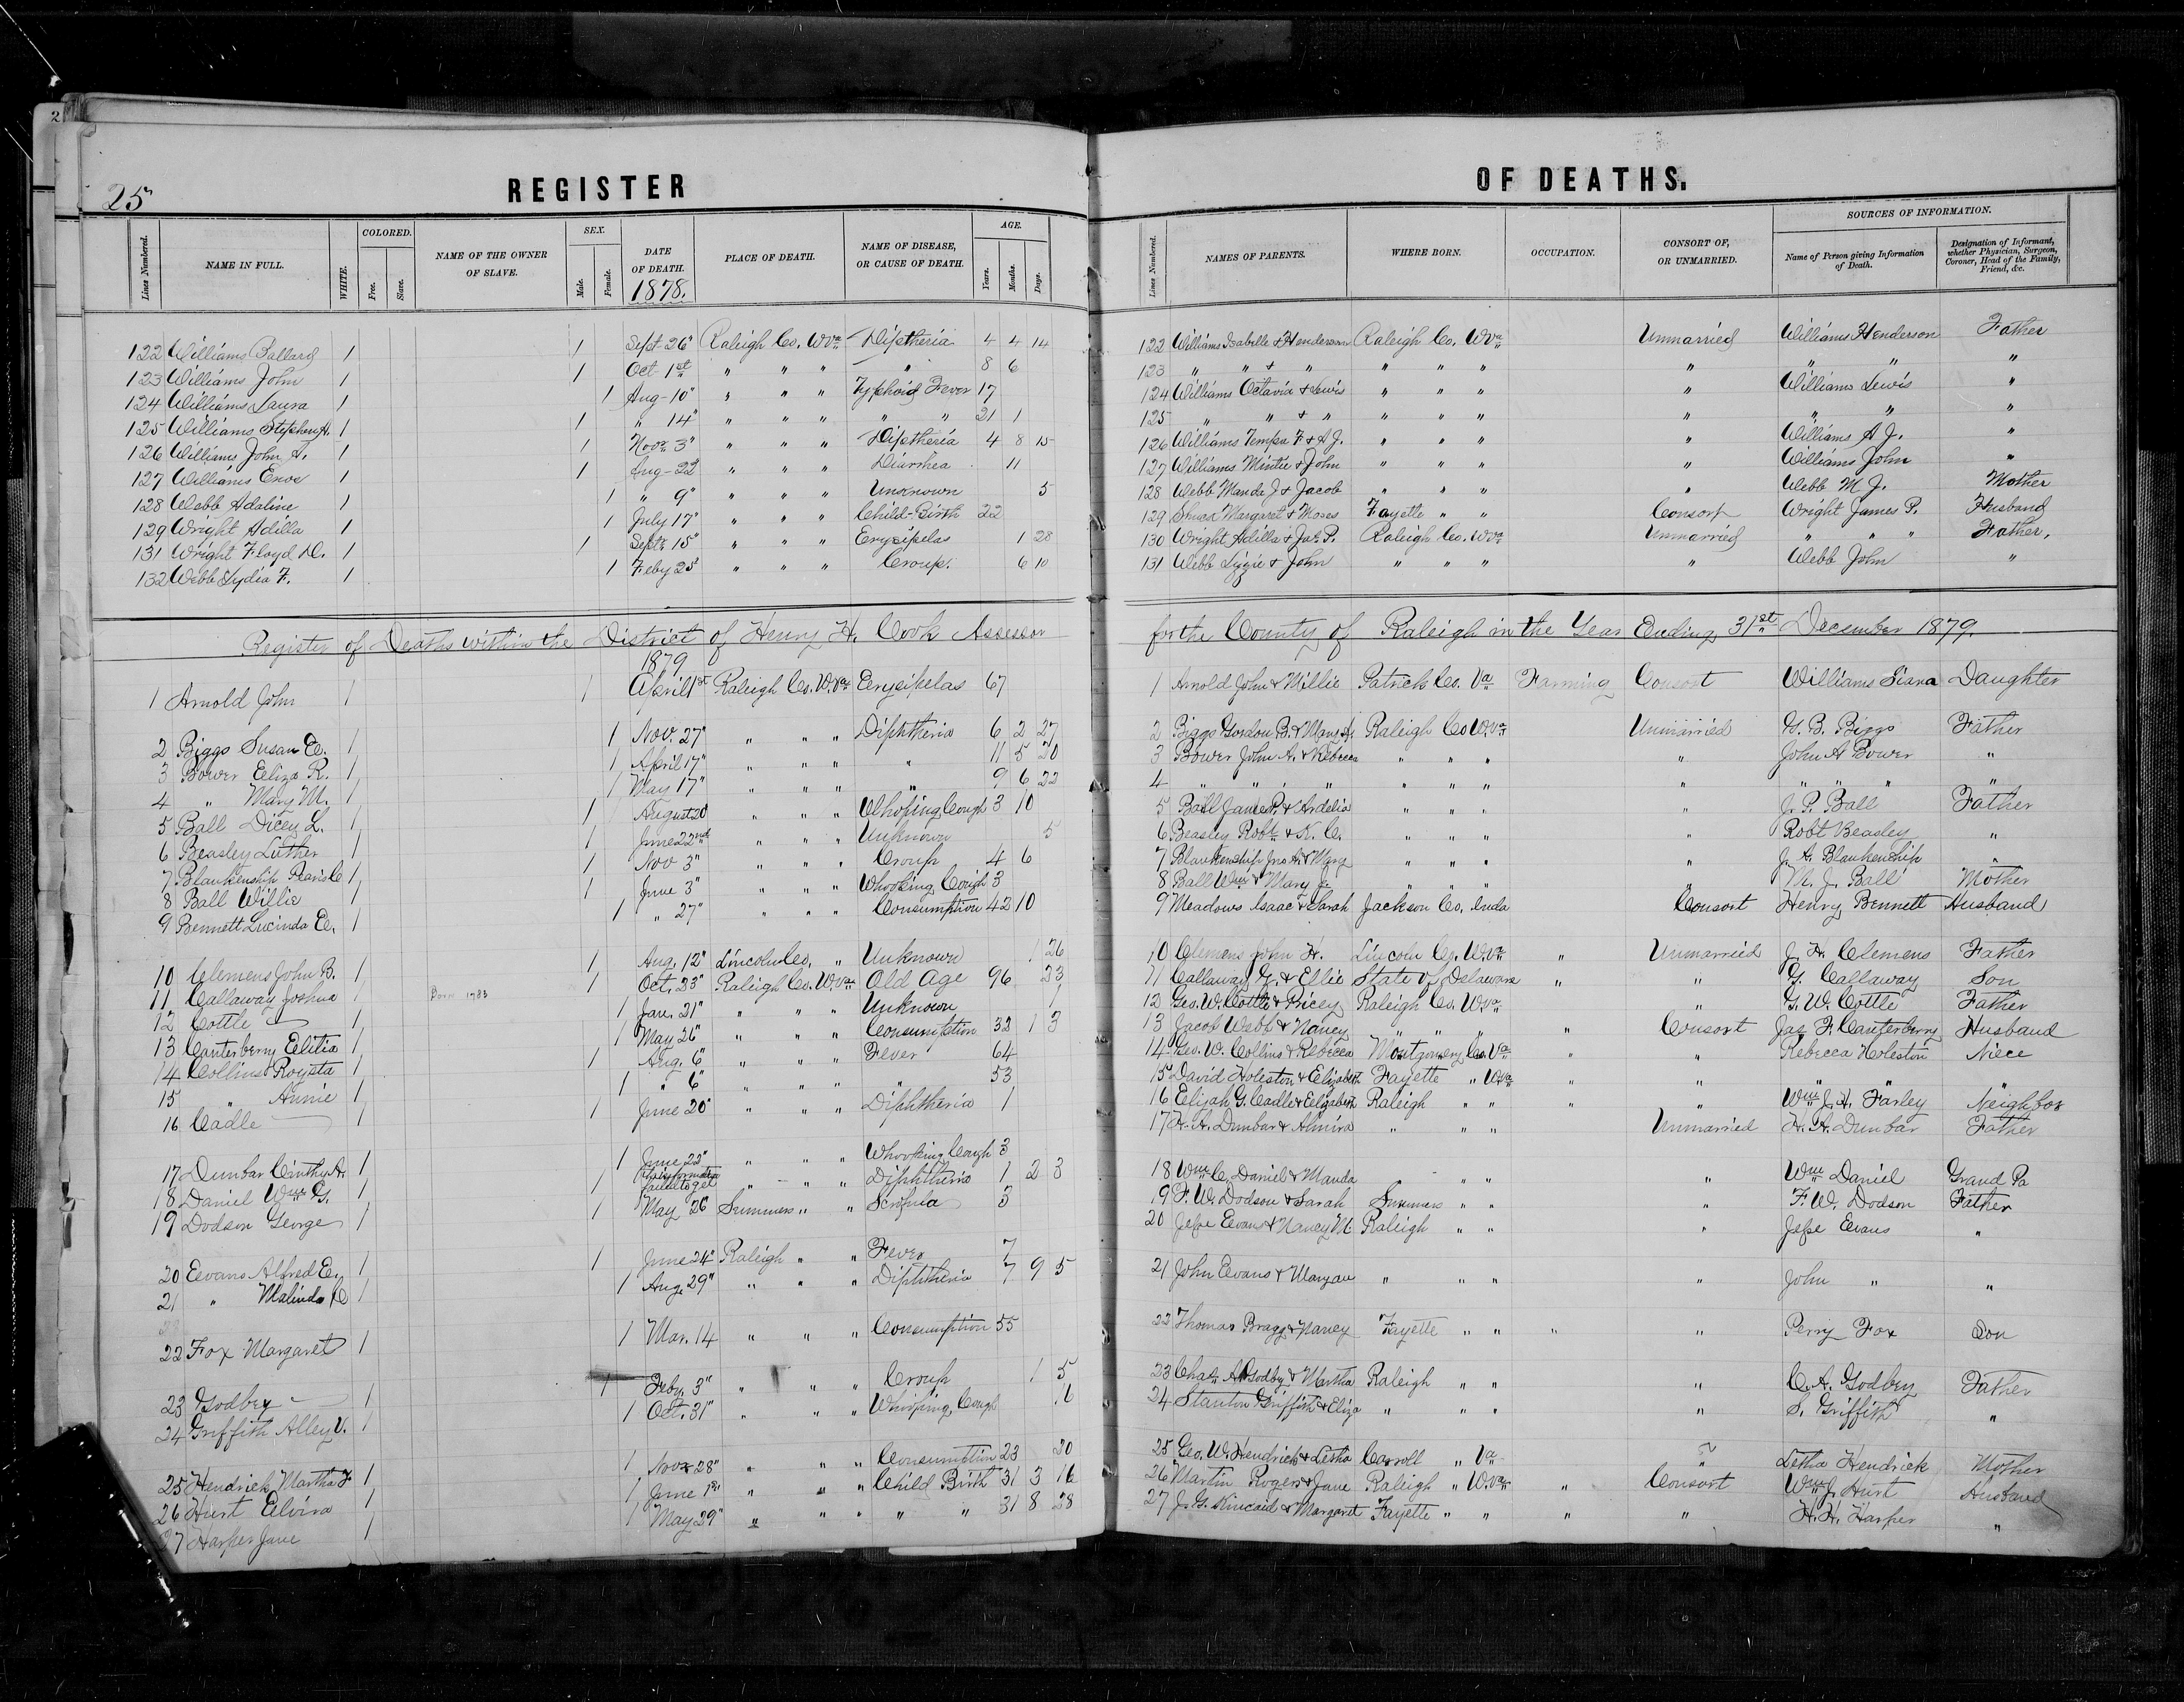 25
REGISTER OF DEATHS.
Lines Numbered. NAME IN FULL. WHITE. COLORED. Free. Slave. NAME OF THE OWNER OF SLAVE. SEX. Male. Female. DATE OF DEATH. 1878. PLACE OF DEATH. NAME OF DISEASE, OR CAUSE OF DEATH. AGE. Years. Months. Days. Lines Numbered. NAMES OF PARENTS. WHERE BORN. OCCUPATION. CONSORT OF, OR UNMARRIED. SOURCES OF INFORMATION. Name of Person giving Information of Death. Designation of Informant, whether Physician, Surgeon, Coroner, Head of the Family, Friend, &c.
122 Williams Ballard 1 1 Sept 26" Raleigh Co. Wva Diptheria 4 4 14 122 Williams Isabelle & Henderson Raleigh Co. Wva Unmarried Williams Henderson Father
123 Williams John 1 1 Oct 1st " " " " 8 6 123 " " & " " " " " " " "
124 Williams Laura 1 1 Aug 10" " " " Typhoid Fever 17 124 Williams Octavia & Lewis " " " " Williams Lewis "
125 Williams Stephen H. 1 1 " 14" " " " " " 21 1 125 " " & " " " " " " " "
126 Williams John A. 1 1 Novr 3" " " " Diptheria 4 8 15 126 Williams Tempa F & A J. " " " " Williams A J. "
127 Williams Enos 1 1 Aug 22d " " " Diarrhea 11 127 Williams Mintie & John " " " " Williams John "
128 Webb Adaline 1 1 " 9" " " " Unknown 5 128 Webb Manda J & Jacob " " " " Webb M J. Mother
129 Wright Adilla 1 1 July 17" " " " Child-Birth 22 129 Margaret & Moses Fayette " " Consort Wright James P. Husband
131 Wright Floyd D. 1 1 Sept 15" " " " Erysipelas 1 28 130 Wright Adilla & Jas. P. Raleigh Co. Wva Unmarried " " " Father.
132 Webb Lydia F. 1 1 Feby 25" " " " Croup. 6 10 131 Webb Lizzie & John " " " " Webb John "
Register of Deaths within the District of Henry H. Cook Assessor for the County of Raleigh in the Year Ending 31st December 1879.
1879
1 Arnold John 1 1 April 1st Raleigh Co. W.va Erysipelas 67 1 Arnold John & Millie Patrick Co. Va Farming Consort Williams Siana Daughter
2 Biggs Susan E. 1 1 Nov. 27" " " " Diphtheria 6 2 27 2 Biggs Gordon B. & Mary Raleigh Co W.va Unmarried G. B. Biggs Father
3 Bower Eliza R. 1 1 April 17" " " " " 11 5 20 3 Bower John A. & Rebecca " " " " John A Bower "
4 " Mary M. 1 1 May 17" " " " " 9 6 22 4 " " " " " " " " " " " "
5 Ball Dicey L. 1 1 August 20 " " " Whoping Cough 3 10 5 Ball James P. & Ardelia " " " " J. P. Ball Father
6 Beasley Luther 1 1 June 22nd " " " Unknown 5 6 Beasley Robt & K. C. " " " " Robt Beasley "
7 Blankenship Pearis C 1 1 Nov 3" " " " Croup 4 6 7 Blankenship Jno A. & Mary " " " " J. A. Blankenship "
8 Ball Willie 1 1 June 3" " " " Whooking Cough 3 8 Ball Wm & Mary J. " " " " M. J. Ball Mother
9 Bennett Lucinda E. 1 1 " 27" " " " Consumption 42 10 9 Meadows Isaac & Sarah Jackson Co. Inda Consort Henry Bennett Husband
10 Clemens John B. 1 1 Aug. 12" Lincoln Co. " Unknown 1 26 10 Clemens John H. Lincoln Co. W.va " Unmarried J. H. Clemens Father
11 Callaway Joshua 1 Born 1783 1 Oct. 23" Raleigh Co. W.va Old Age 96 23 11 Callaway G. & Ellie State of Delaware " " G. Callaway Son
12 Cottle 1 1 Jan. 21" " " " Unknown 1 12 Geo. W. Cottle & Pricey Raleigh Co. W.va " G. W. Cottle Father
13 Canterberry Elitia 1 1 May 26" " " " Consumption 32 1 3 13 Jacob Webb & Nancy " " " " Consort Jas F. Canterberry Husband
14 Collins Roysta 1 1 Aug. 6" " " " Fever 64 14 Geo. W. Collins & Rebecca Montgomery Co. Va " " Rebecca Holeston Niece
15 " Annie 1 1 " 6" " " " " 53 15 David Holeston & Elizabeth Fayette " W.va " " " "
16 Cadle 1 1 June 20" " " " Diphtheria 1 16 Elijah G. Cadle & Elizabeth Raleigh " " " " Wm J. A. Farley Neighbor
17 Dunbar Cinthy A. 1 1 June 22" " " " Whooking Cough 3 17 H. A. Dunbar & Almira " " " Unmarried H. A. Dunbar Father
18 Daniel Wm G. 1 1 failed to get " " " Diphtheria 1 2 3 18 Wm C. Daniel & Manda " " " " Wm Daniel Grand Pa
19 Dodson George 1 1 May 26" Summers " " Scrofula 3 19 F. W. Dodson & Sarah Summers " " " F. W. Dodson Father
20 Evans Alfred E. 1 1 June 24" Raleigh " " Fever 7 20 Jesse Evans & Nancy M. Raleigh " " " Jesse Evans "
21 " Malinda C 1 1 Aug. 29" " " " Diphtheria 7 9 5 21 John Evans & Maryan " " " " John " "
22 Fox Margaret 1 1 Mar. 14 " " " Consumption 55 22 Thomas Bragg & Nancy Fayette " " " " Perry Fox Son
23 Godbey 1 1 Feby. 3" " " " Croup 1 5 23 Chas A Godby & Martha Raleigh " " " C. A. Godbey Father
24 Griffith Alley V. 1 1 Oct. 31" " " " Whooping Cough 16 24 Stanton Griffith & Eliza " " " " S. Griffith "
25 Hendrick Martha F 1 1 Nov 28" " " " Consumption 23 20 25 Geo. W. Hendrick & Letha Carroll " Va " Letha Hendrick Mother
26 Hurt Elvira 1 1 June 1st " " " Child Birth 31 3 16 26 Martin Rogers & Jane Raleigh " W.va " Consort Wm J. Hurt Husband
27 Harper Jane 1 1 May 29" " " " " " 31 8 28 27 J. G. Kincaid & Margaret Fayette " " " " H. H. Harper "